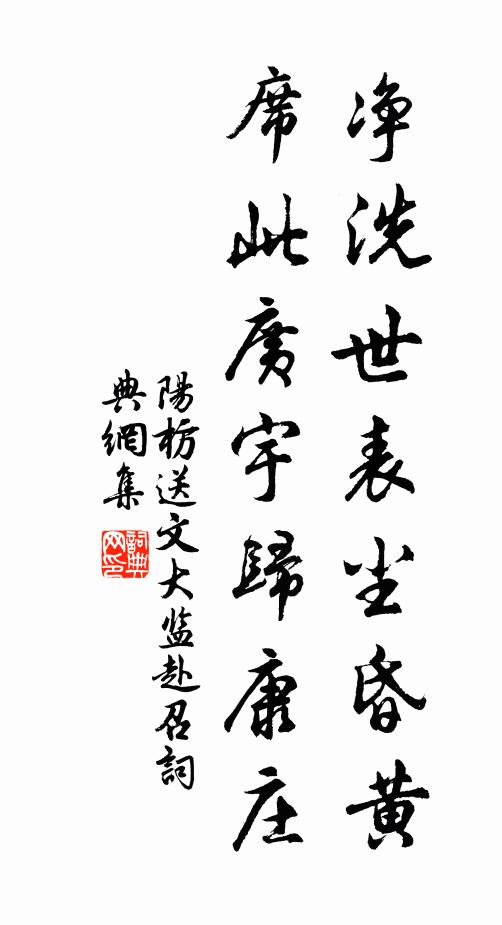 净洗世表尘昏黄
席此廣宇歸康庄
陽枋送文大监赴召詞
典網集
詞典网印